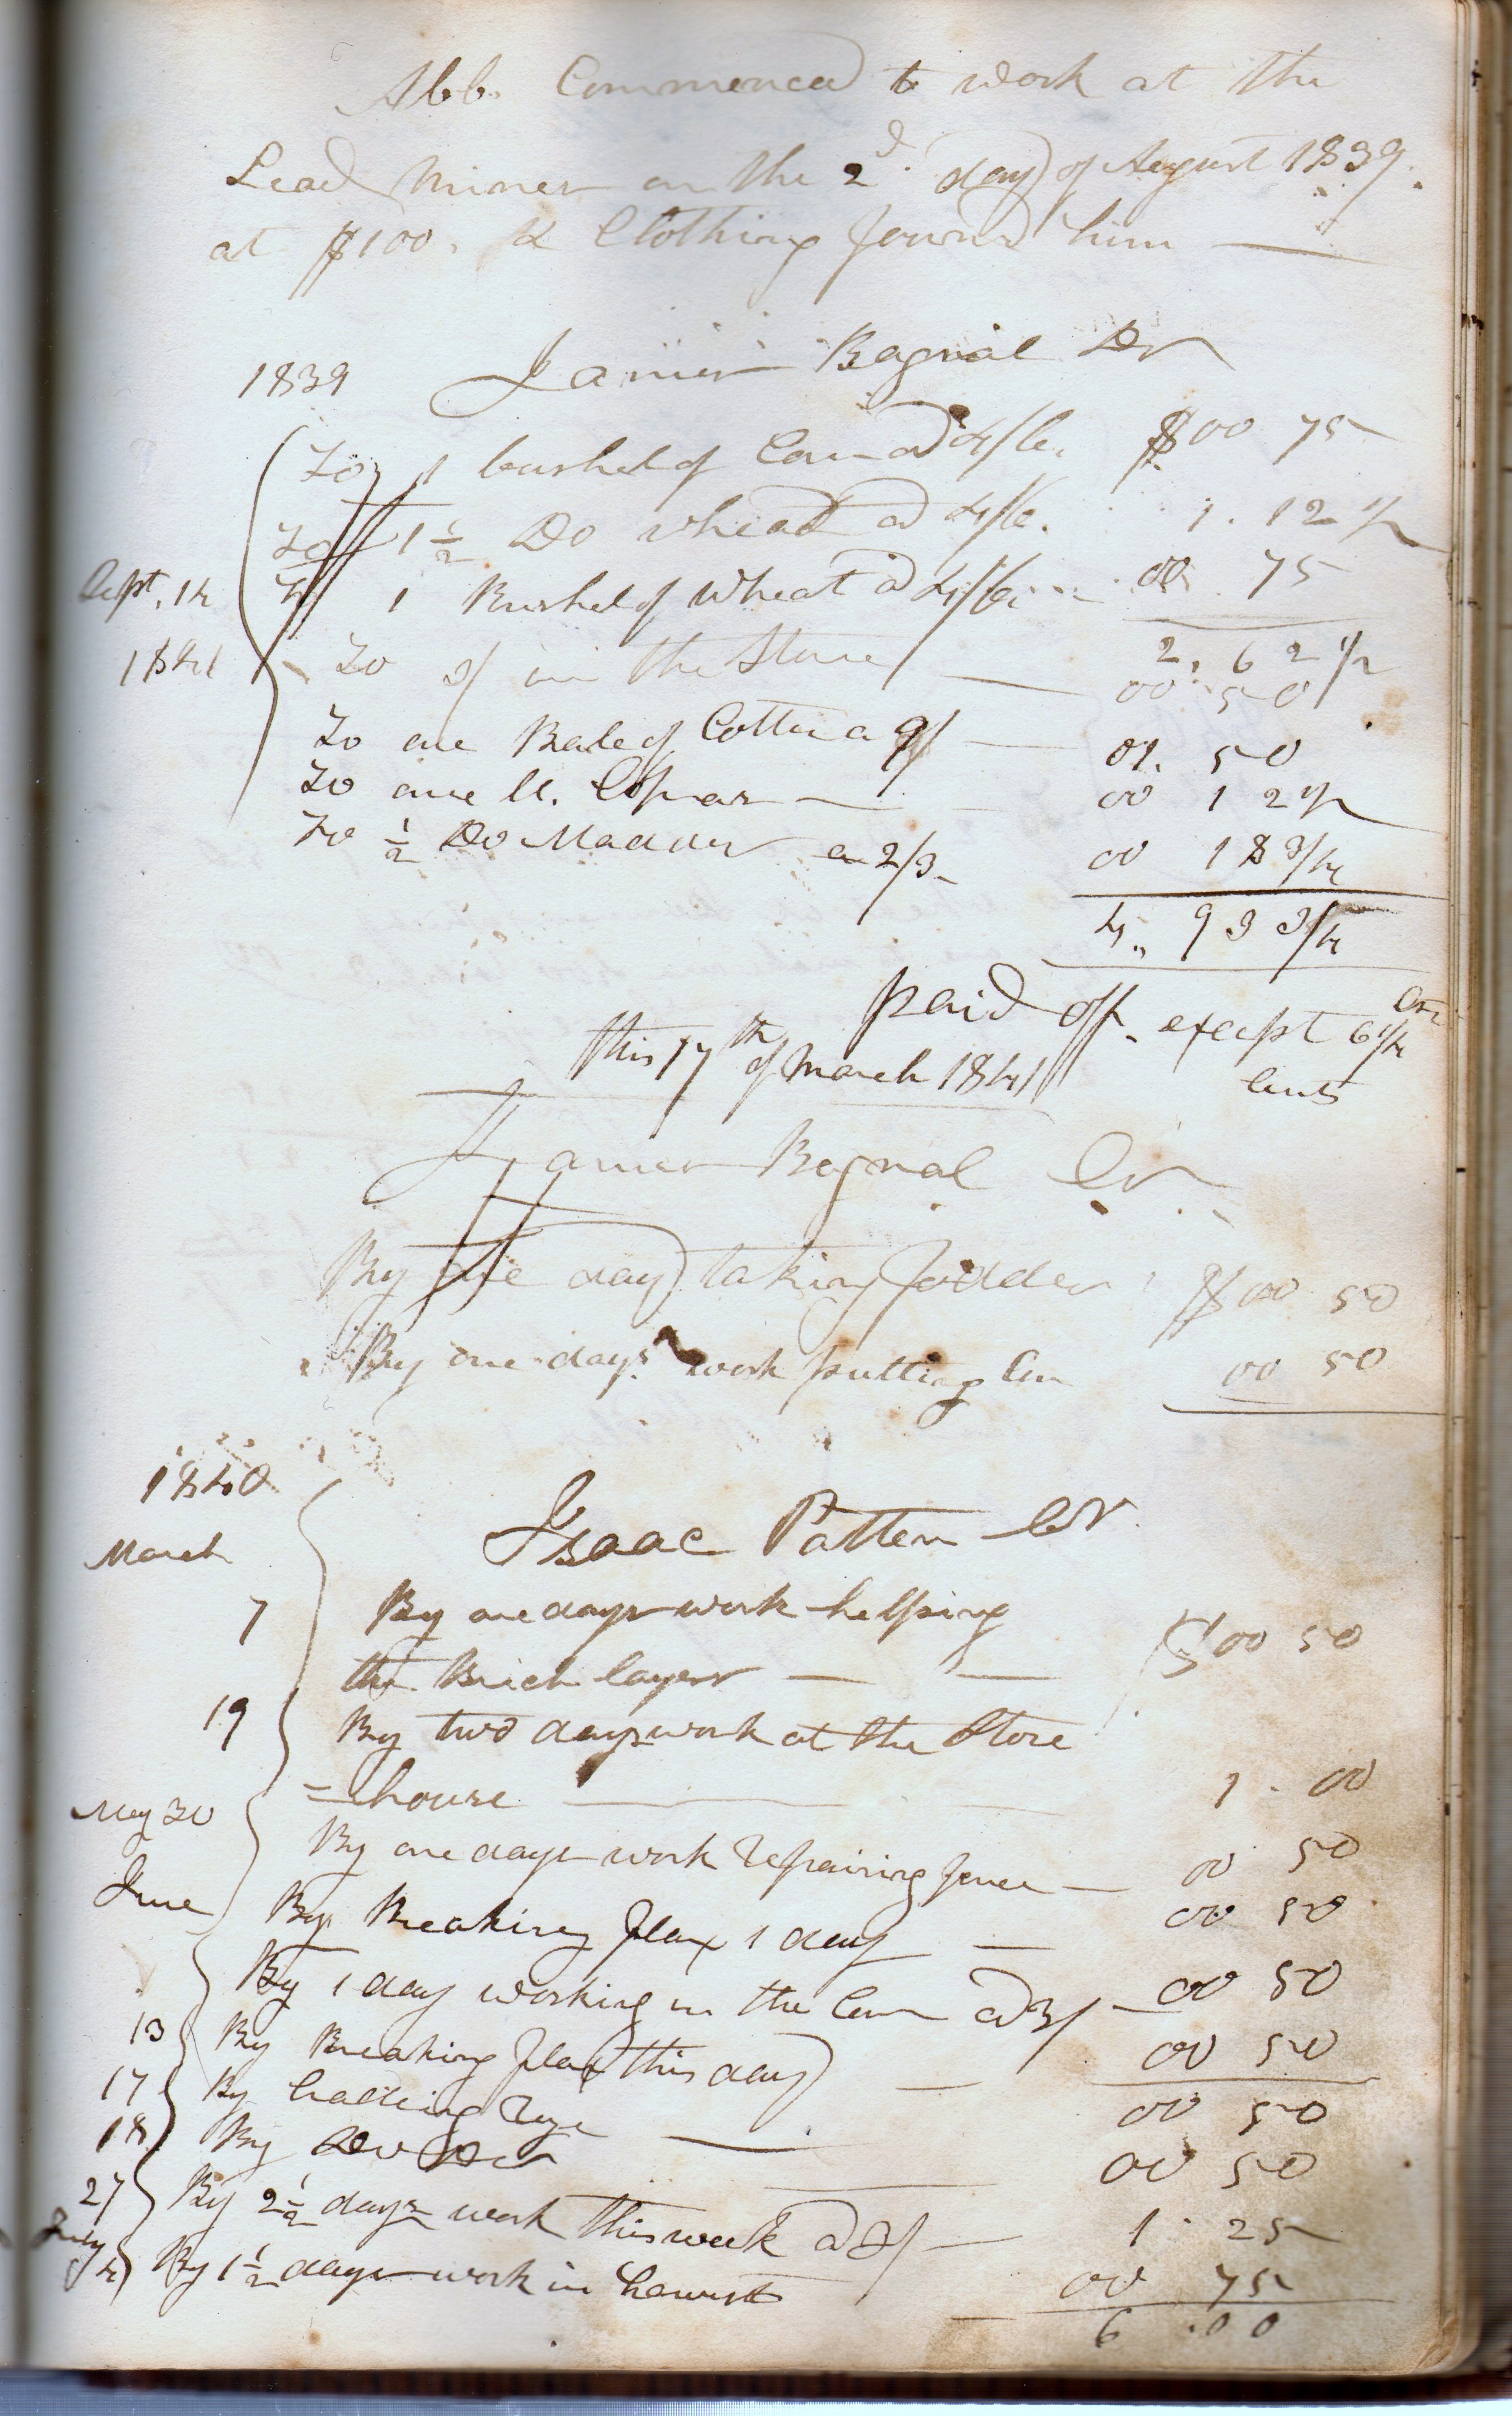 Abb. Commenced to work at the
Lead Mines on the 2d. day of August 1839.
at $100. & Clothing found him —
1839 James Bagnal Dr
To 1 bushel of Corn a 4/6. $00 75
To 1 1/2 Do wheat a 4/6. 1. 12 1/2
Sept. 14 To 1 Bushel of Wheat a 4/6. 00. 75
2. 62 1/2
1841 To 3/ in the Store — 00. 50
To one Bale of Cotton a 9/ — 01. 50
To one lb. Coperas — 00 12 1/2
To 1/2 Do Madder a 2/3 00 18 3/4
4. 93 3/4
paid off. except 6 1/4
this 17th of March 1841 Cents
James Bagnal Cr.
By one day taking fodder $00 50
By one days work putting Corn 00 50
1840
March
Isaac Patten Cr.
7 By one days work helping
the Brick layers — — $00 50
19 By two days work at the Store
=house — 1. 00
May 30 By one days work repairing fence — 00 50
June By Breaking flax 1 day — 00 50
By 1 day working in the Corn a 3/ — 00 50
13 By Breaking flax this day — 00 50
17 By halling Rye — 00 50
18 By Do Do 00 50
27 By 2 1/2 days work this week a 3/ — 1. 25
July 4 By 1 1/2 days work in harvest 00 75
6.00